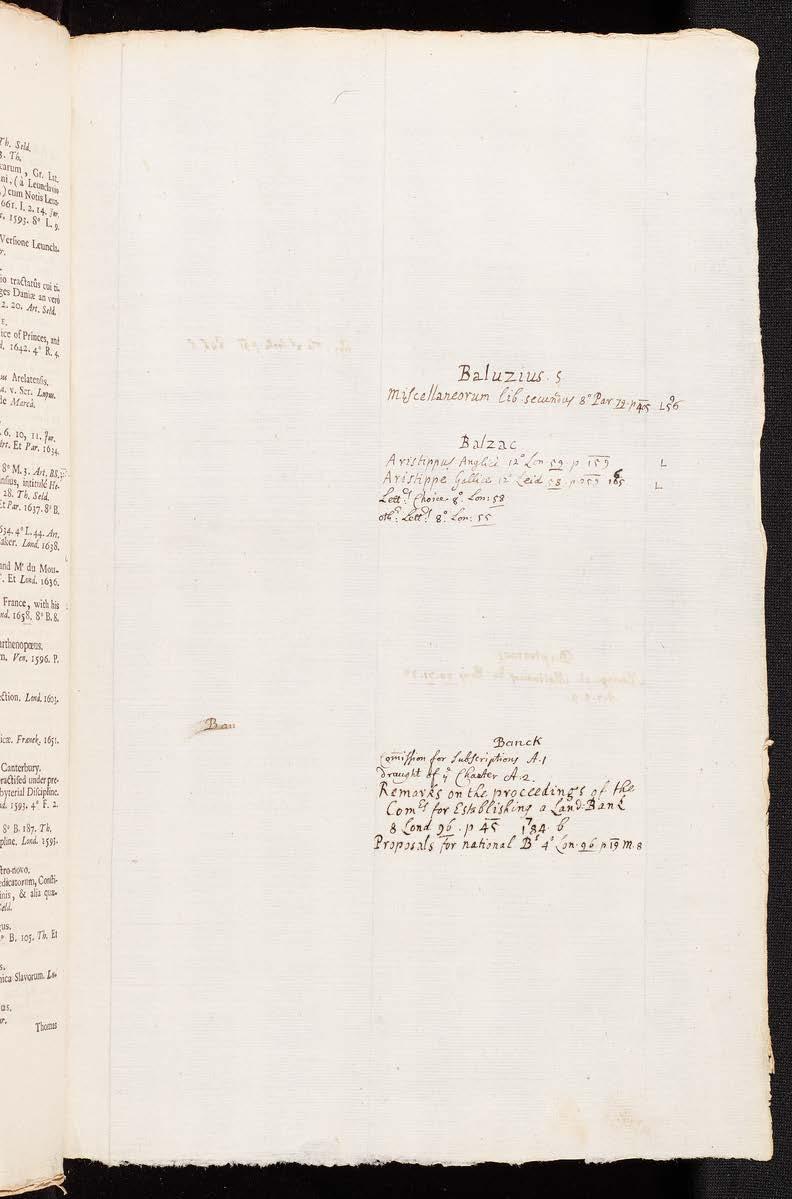 Th. Seld.
3. Th.
carum, Gr. Lat.
ni, (à Leunclavio
) cum Notis Leun-
661. I. 2. 14. Jur.
1593. 8° L. 9.
Versione Leuncla.
io tractatûs cui ti-
ges Daniæ an verò
2. 20. Art. Seld.
ice of Princes, and
d. 1642. 4° R. 4.
us Arelatensis.
a. v. Ser. Lupus.
de Marcâ.
6. 10, 11. Jur.
Art. Et Par. 1634.
8° M. 3. Art. BS.
nsius, intitulé He-
28. Th. Seld.
Et Par. 1637. 8° B.
634. 4° L. 44. Art.
aker. Lond. 1638.
and Mr du Mou-
Et Lond. 1636.
France, with his
nd. 1658. 8° B. 8.
arthenopœus.
m. Ven. 1596. P.
ction. Lond. 1603.
icæ. Franek. 1651.
Canterbury.
ractised under pre-
byterial Discipline.
nd. 1593. 4° F. 2.
8° B. 187. Th.
pline. Lond. 1593.
tro-novo.
edicatorum, Consti-
inis, & alia quæ-
Seld.
gus.
B. 105. Th. Et
s.
nica Slavorum. Lu-
us.
Thomas
Baluzius. S
Miscellaneorum lib. secundus 8° Par 79. p 405 L 596
Balzac
Aristippus Anglicè 12° Lon 59 p 159 L
Aristippe Gallicè 12° Leid 58. p 259 165 L
Lettrs Choice 8° Lon: 58
othr: Lettrs 8° Lon: 55
Ban
Banck
Comission for Subscriptions A. 1
draught of ye Charter A. 2.
Remarks on the proceedings of the
Comrs for Establishing a Land-Bank
8 Lond 96. p 45 184. b
Proposals for national Bk 4° Lon. 96 p 19 M. 8